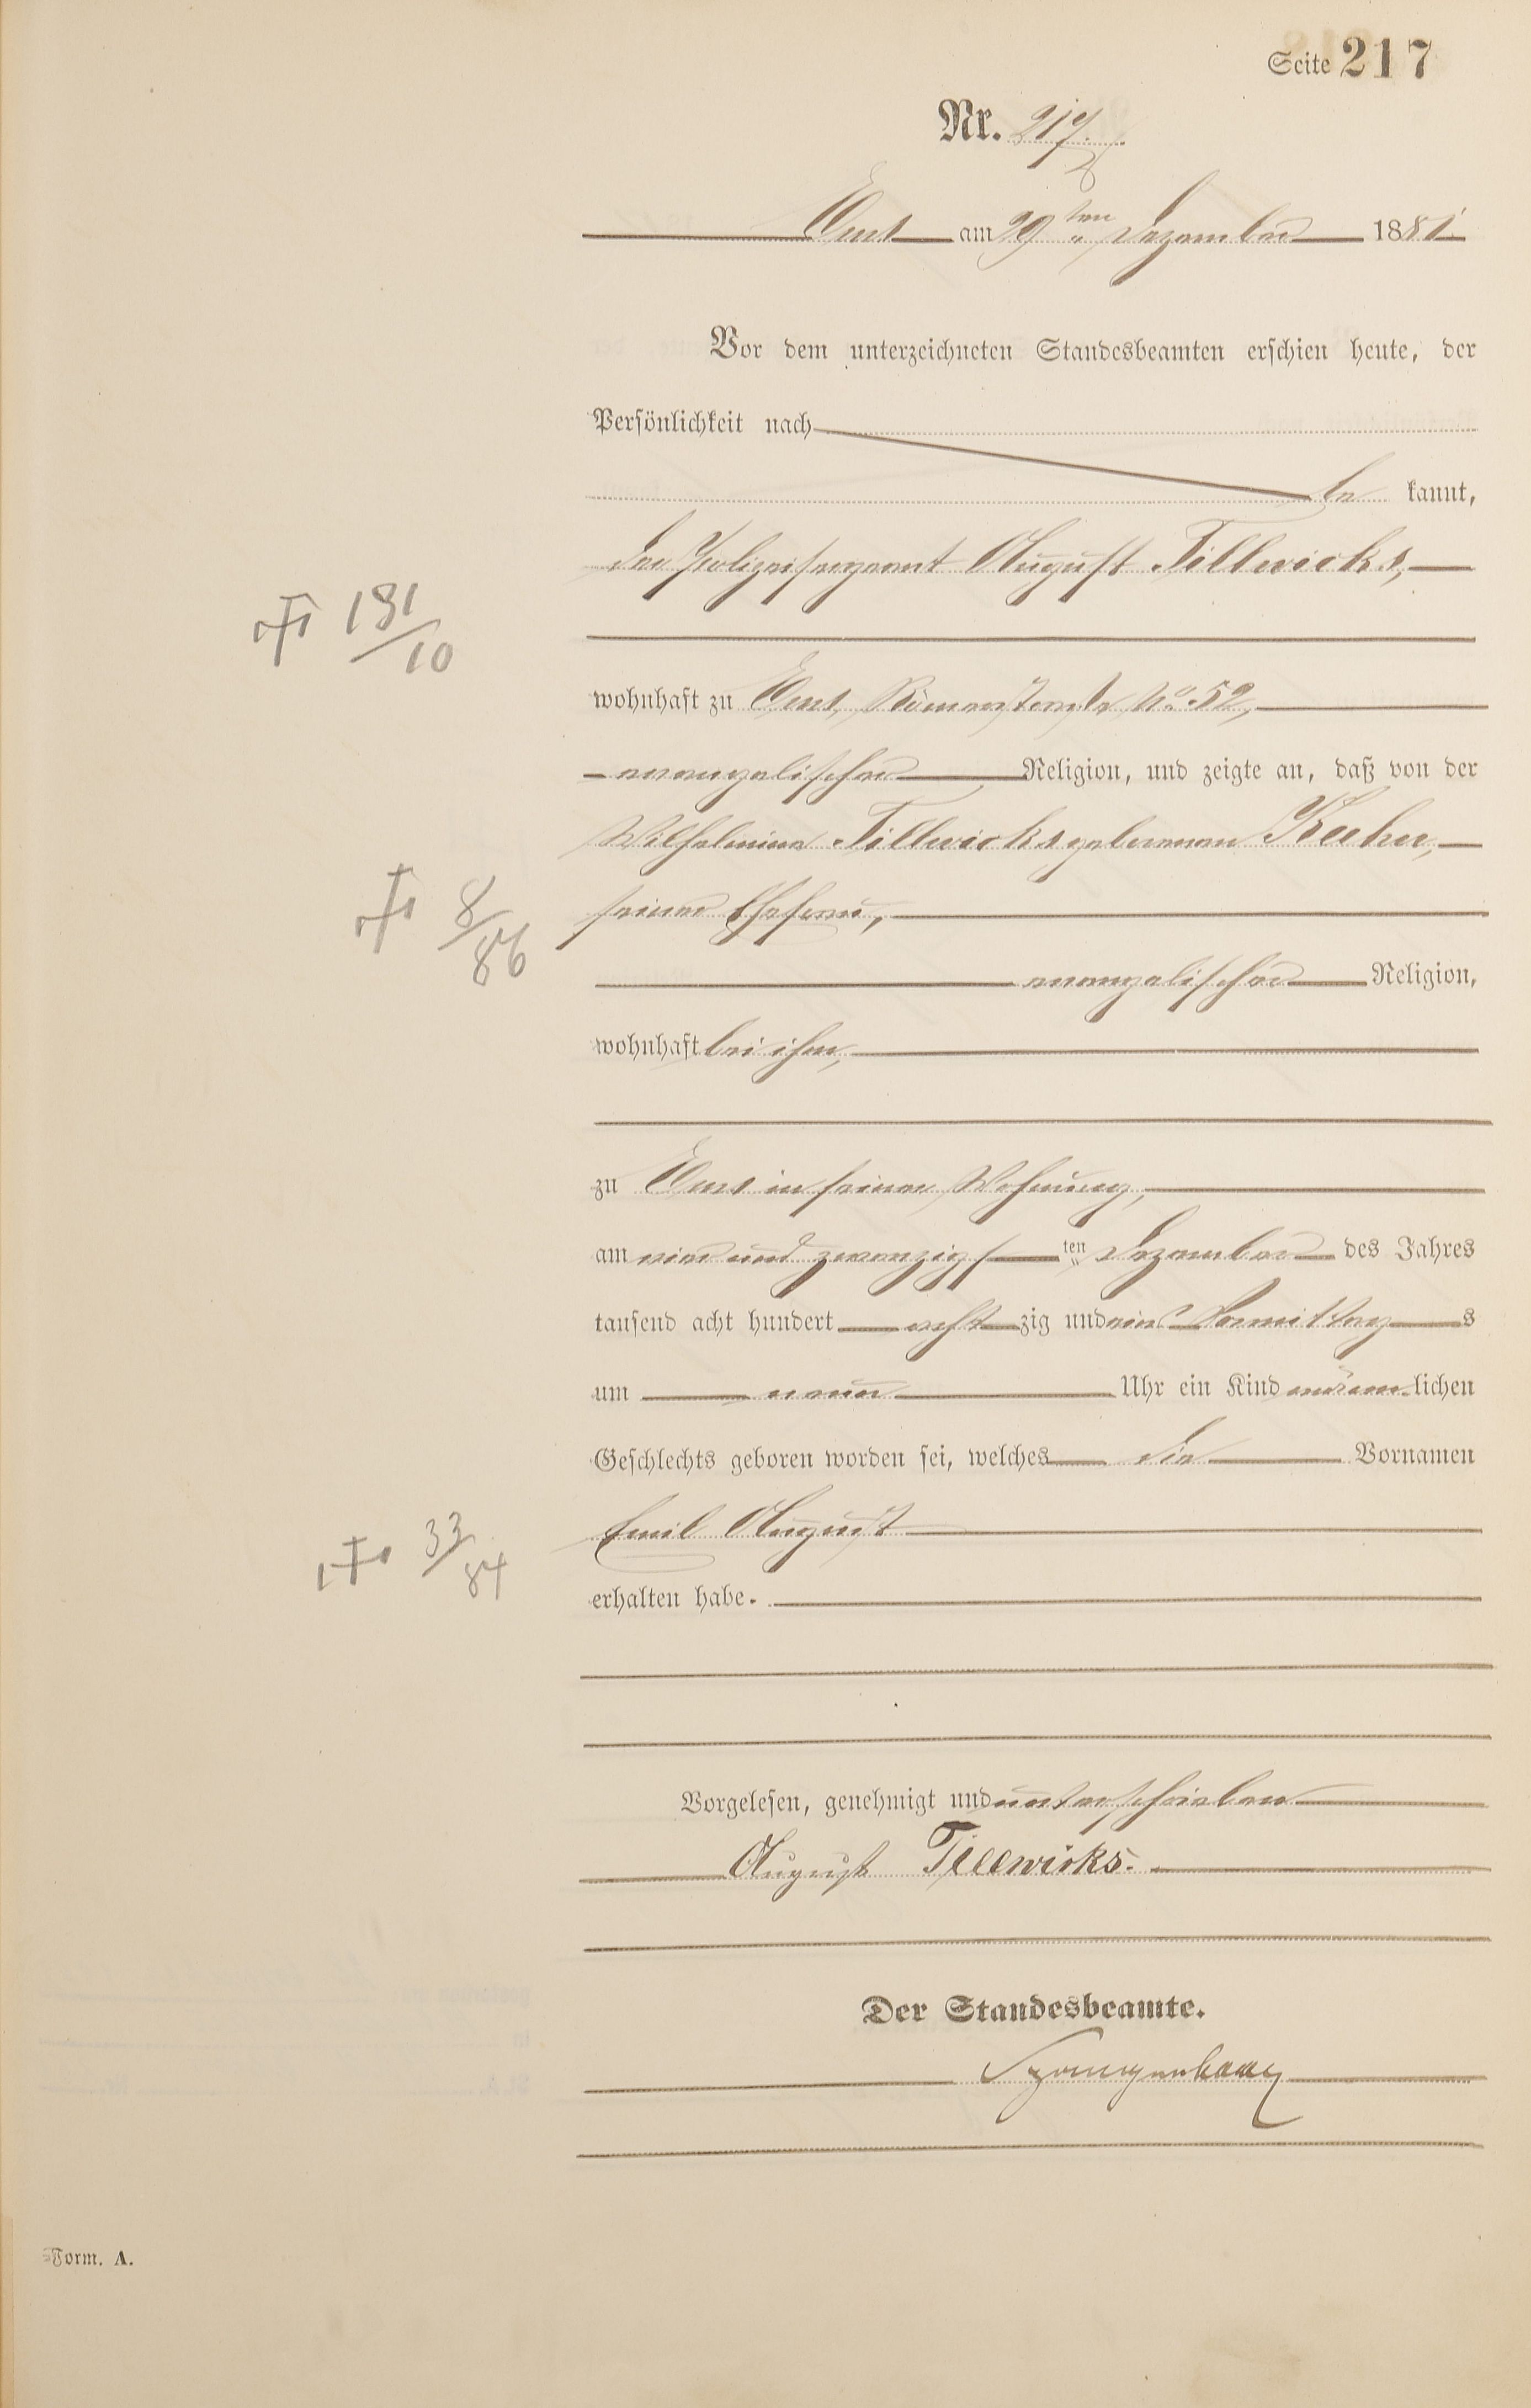 Seite 217
Nr. 217.
Ems am 29ten Dezember 1881.
Vor dem unterzeichneten Standesbeamten erschien heute, der
Persönlichkeit nach
be kannt,
der Polizeisergeant August Tillwicks,
†s 191/10
wohnhaft zu Ems, Römerstraße No. 52,
evangelischer Religion, und zeigte an, daß von der
Wilhelmine Tillwicks geborenen
†s 8/86
seiner Ehefrau,
evangelischer Religion,
wohnhaft bei ihm,
zu Ems in seiner Wohnung,
am vier und zwanzigsten Dezember des Jahres
tausend acht hundert acht zig und eins Vormittags
um neun Uhr ein Kind männlichen
Geschlechts geboren worden sei, welches die Vornamen
Emil August
†s 33/84
erhalten habe.
Vorgelesen, genehmigt und unterschrieben
August Tillwicks.
Der Standesbeamte.
Form. A.